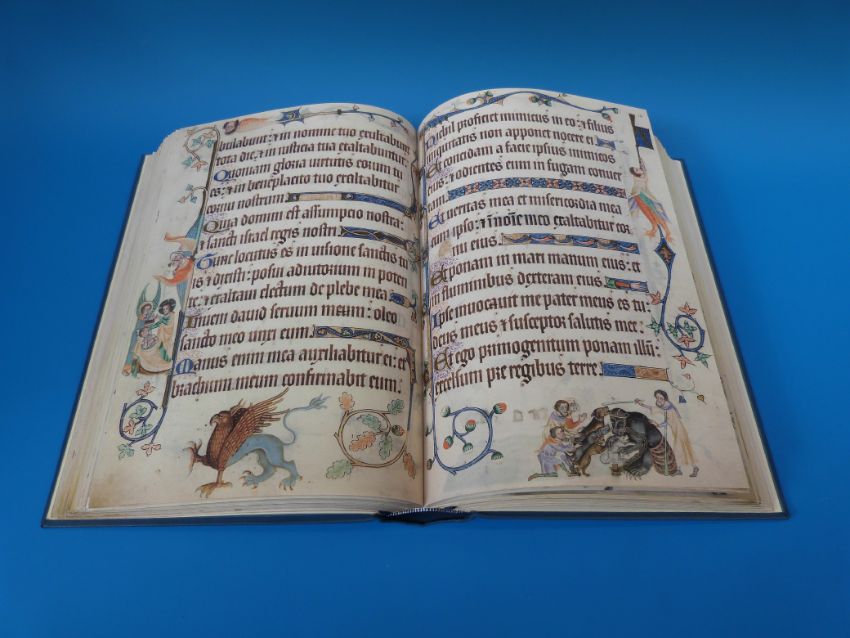 bulabunt: & in nomine tuo exultabunt
tota die: & in iusticia tua exaltabuntur.
Quoniam gloria uirtutis eorum tu
es: & in beneplacito tuo exaltabitur
cornu nostrum
Quia domini est assumpcio nostra:
& sancti israel regis nostri
Tunc locutus es in uisione sanctis tu
is & dixisti: posui adiutorium in poten
te: & exaltaui electum de plebe mea
Inueni dauid seruum meum: oleo
sancto meo unxi eum.
Manus enim mea auxiliabitur ei: et
brachium meum confirmabit eum.
Nichil proficiet inimicus in eo: & filius
iniquitatis non apponet nocere ei
Et concidam a facie ipsius inimicos
eius: & odientes eum in fugam conuer
tam.
Et ueritas mea et misericordia mea
cum ipso: & in noīe meo exaltabitur cor
nu eius.
Et ponam in mari manum eius: et
in fluminibus dexteram eius.
Ipse inuocauit me pater meus es tu:
deus meus & susceptor salutis mee.
Et ego primogenitum ponam illū:
excelsum pre regibus terre.